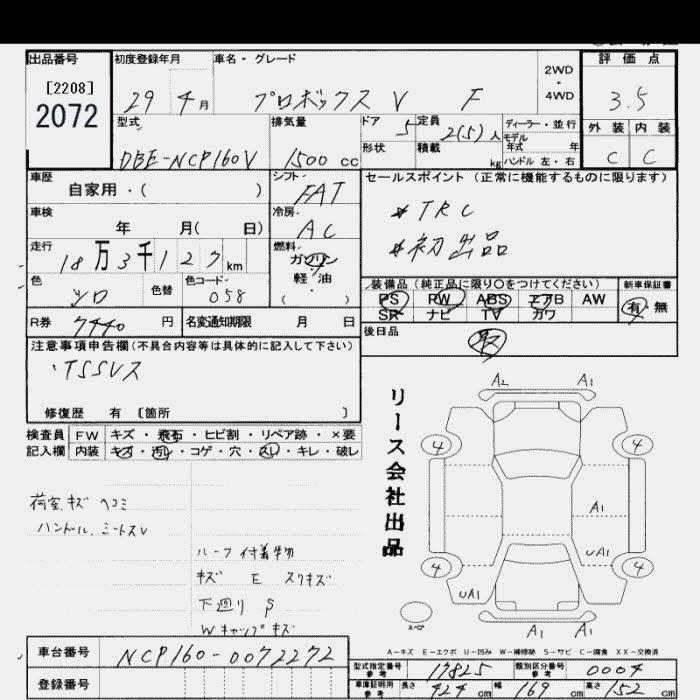 出品番号
[2208]
2072
初度登録年月
29 4月
車名・グレード
プロボックス V F
2WD
・
4WD
評価点
3.5
型式
DBE-NCP160V
排気量
1500 cc
ドア 5
形状
定員 2(5)人
積載 kg
ディーラー・並行
モデル
年式 年
ハンドル 左・右
外装 内装
C C
車歴
自家用・( )
シフト
FAT
車検
年 月( 日)
冷房
AC
走行
18万3千127km
燃料
ガソリン
軽・油
( )
色
シロ
色替
色コード
058
R券 7440 円
名変通知期限 月 日
セールスポイント(正常に機能するものに限ります)
*TRC
*初出品
装備品(純正品に限り〇をつけてください)
PS PW ABS エアB AW
SR ナビ TV カワ
新車保証書
有・無
後日品
注意事項申告欄(不具合内容等は具体的に記入して下さい)
修復歴 有 〔箇所 〕
検査員 FW キズ・飛石・ヒビ割・リペア跡・×要
記入欄 内装 キズ・汚レ・コゲ・穴・スレ・キレ・破レ
荷室キズ ヘコミ
ルーフ付着物
キズ E スリキズ
下廻り S
Wキャップキズ
リース会社出品
A2 A1
4 4
A1
4 UA1 4
UA1
A1 A1
A-キズ E-エクボ U-凹み W-補修跡 S-サビ C-腐食 XX-交換済
車台番号 NCP160-0072272
登録番号
型式指定番号
参考
17825
類別区分番号
参考
0004
車庫証明用
参考
長さ 424 cm 幅 169 cm 高さ 152 cm